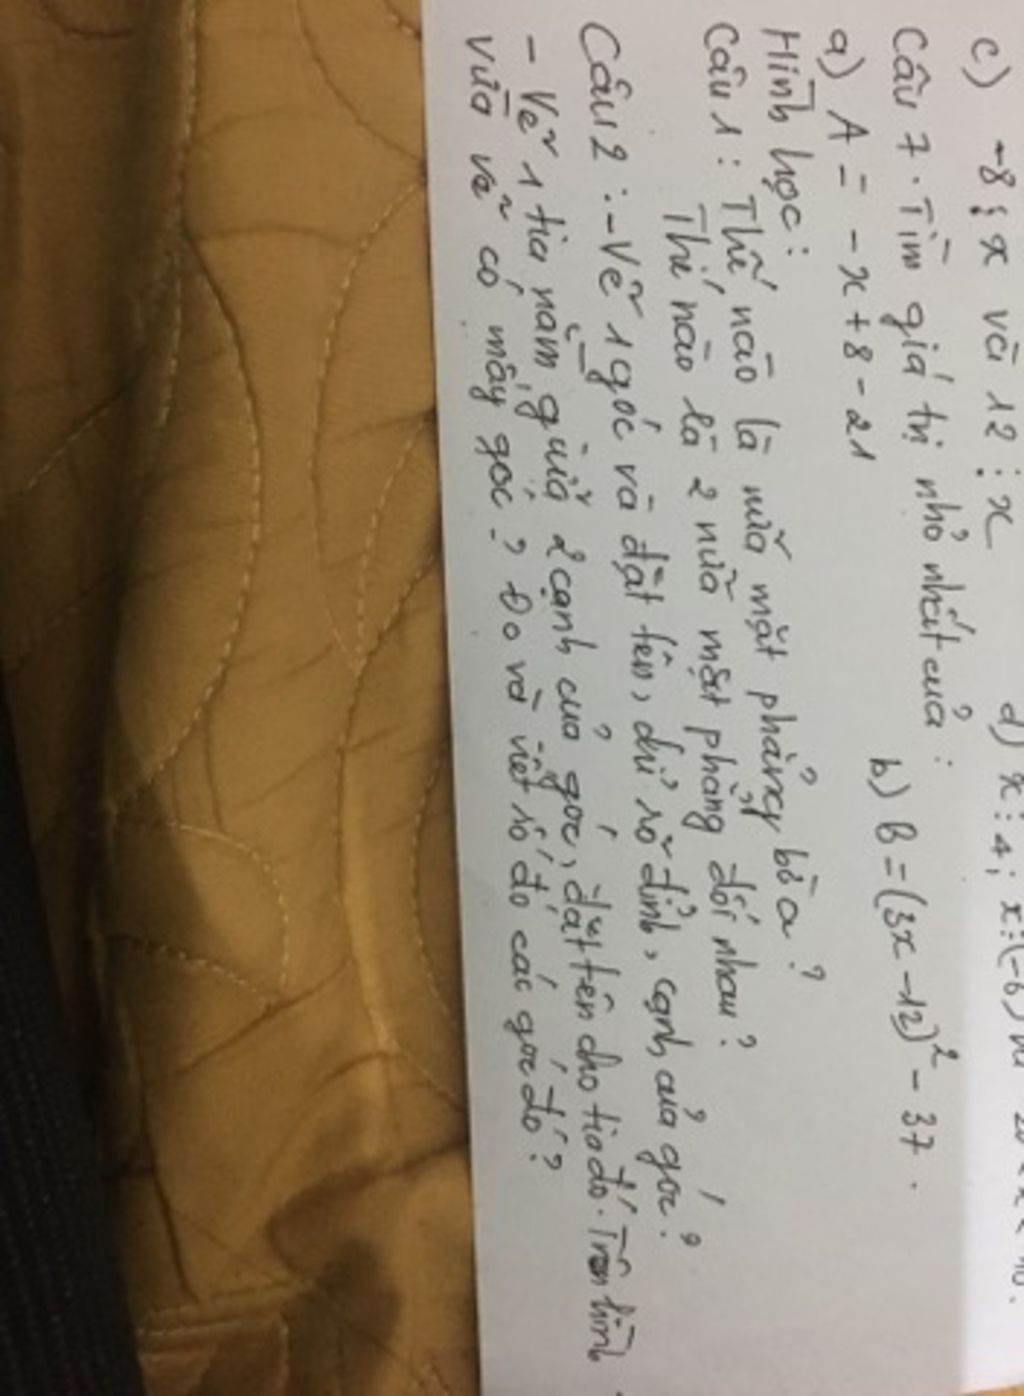 c) -8 ⋮ x và 12 ⋮ x d) x ⋮ 4; x ⋮ (-6) và
Câu 7. Tìm giá trị nhỏ nhất của :
a) A = - x + 8 - 21 b) B = (3x - 12)² - 37 .
Hình học :
Câu 1 : Thế nào là nữa mặt phẳng bờ a ?
Thế nào là 2 nữa mặt phẳng đối nhau ?
Câu 2 : - Vẽ 1 góc và đặt tên, chỉ rõ đỉnh, cạnh của góc ?
- Vẽ 1 tia nằm giữa 2 cạnh của góc, đặt tên cho tia đó. Trên hình
vừa vẽ có mấy góc ? Đo và viết số đo các góc đó ?